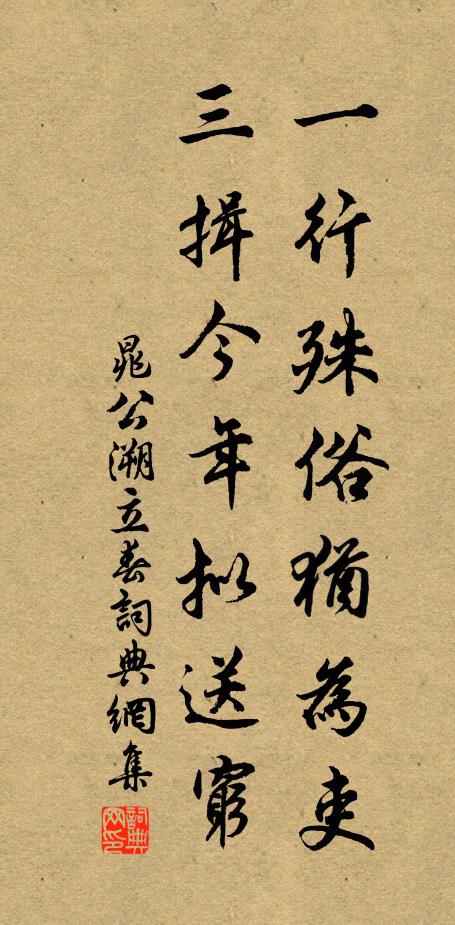 一行殊俗猶為吏
三揖今年拟送窮
晁公溯立春詞典網集
詞典网印